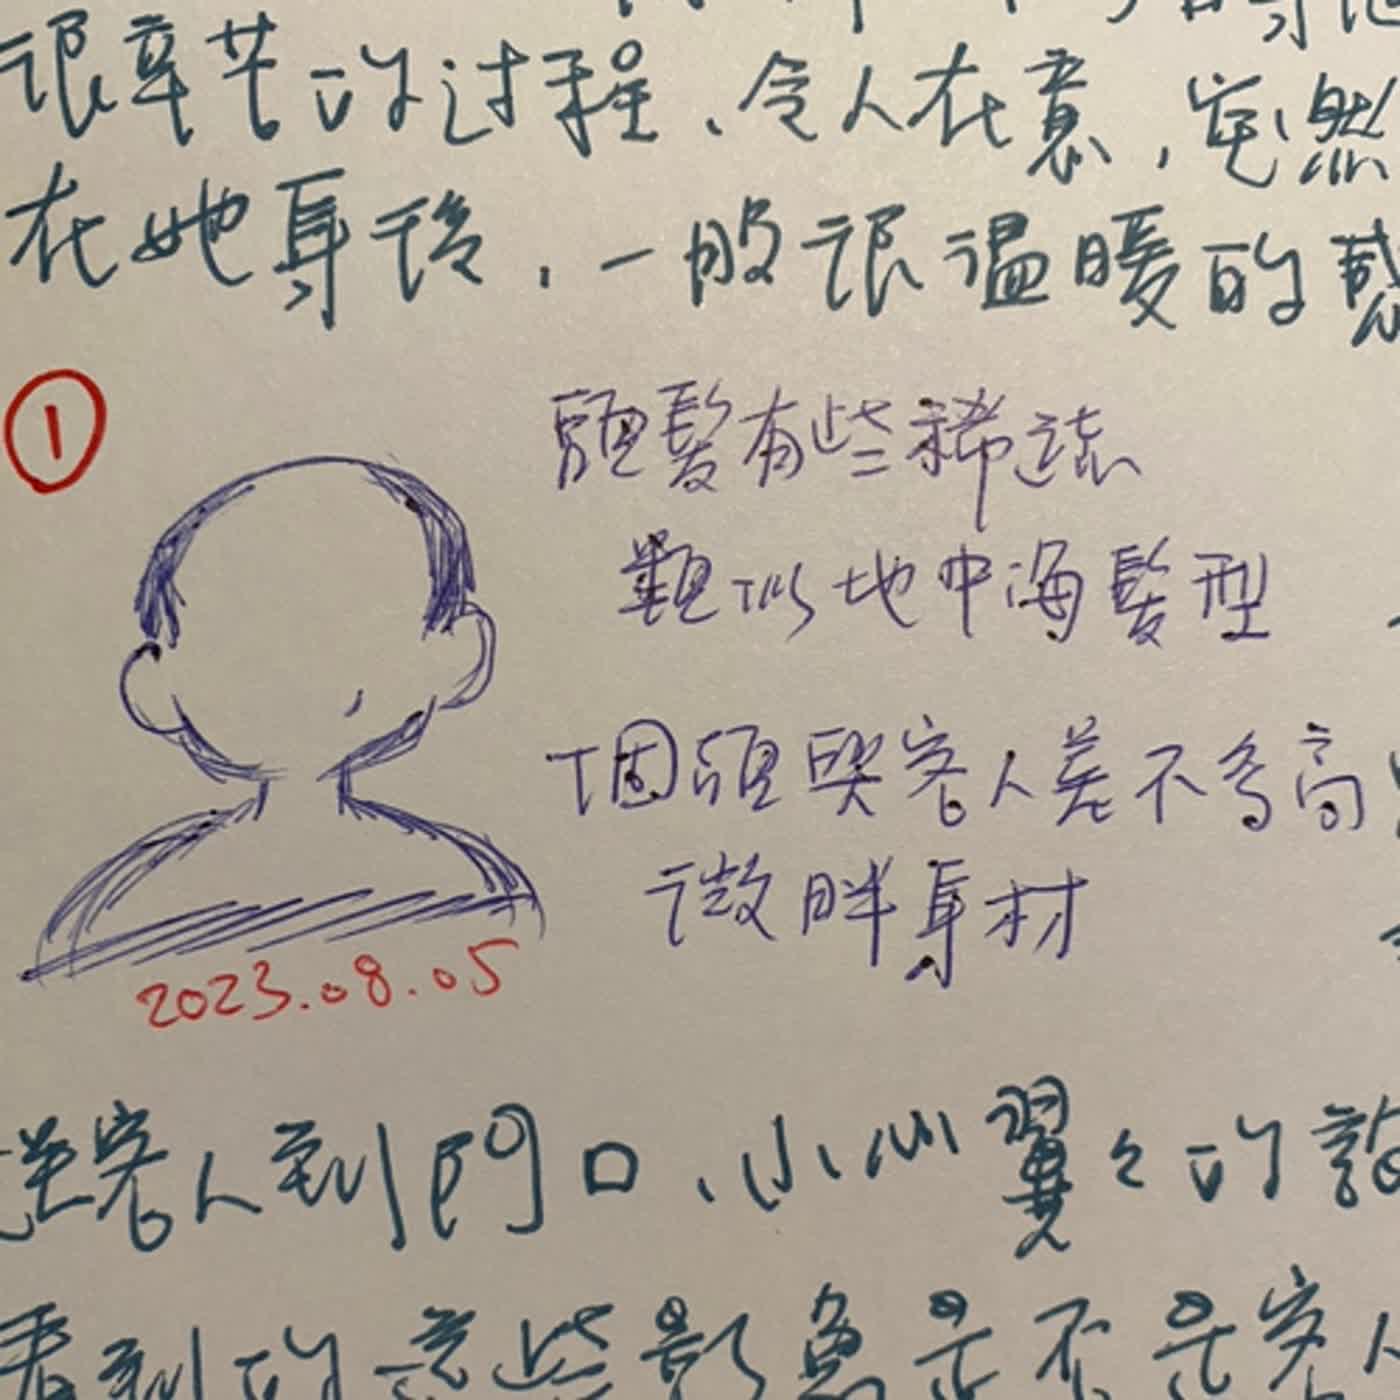 很辛苦的过程、令人在意，突然
在她身後．一股很溫暖的感
①
頭髮有些稀疏
類似地中海髮型
個頭與客人差不多高
微胖身材
2023.08.05
送客人到門口、小心翼々的說
看到的這些影像是不是客人